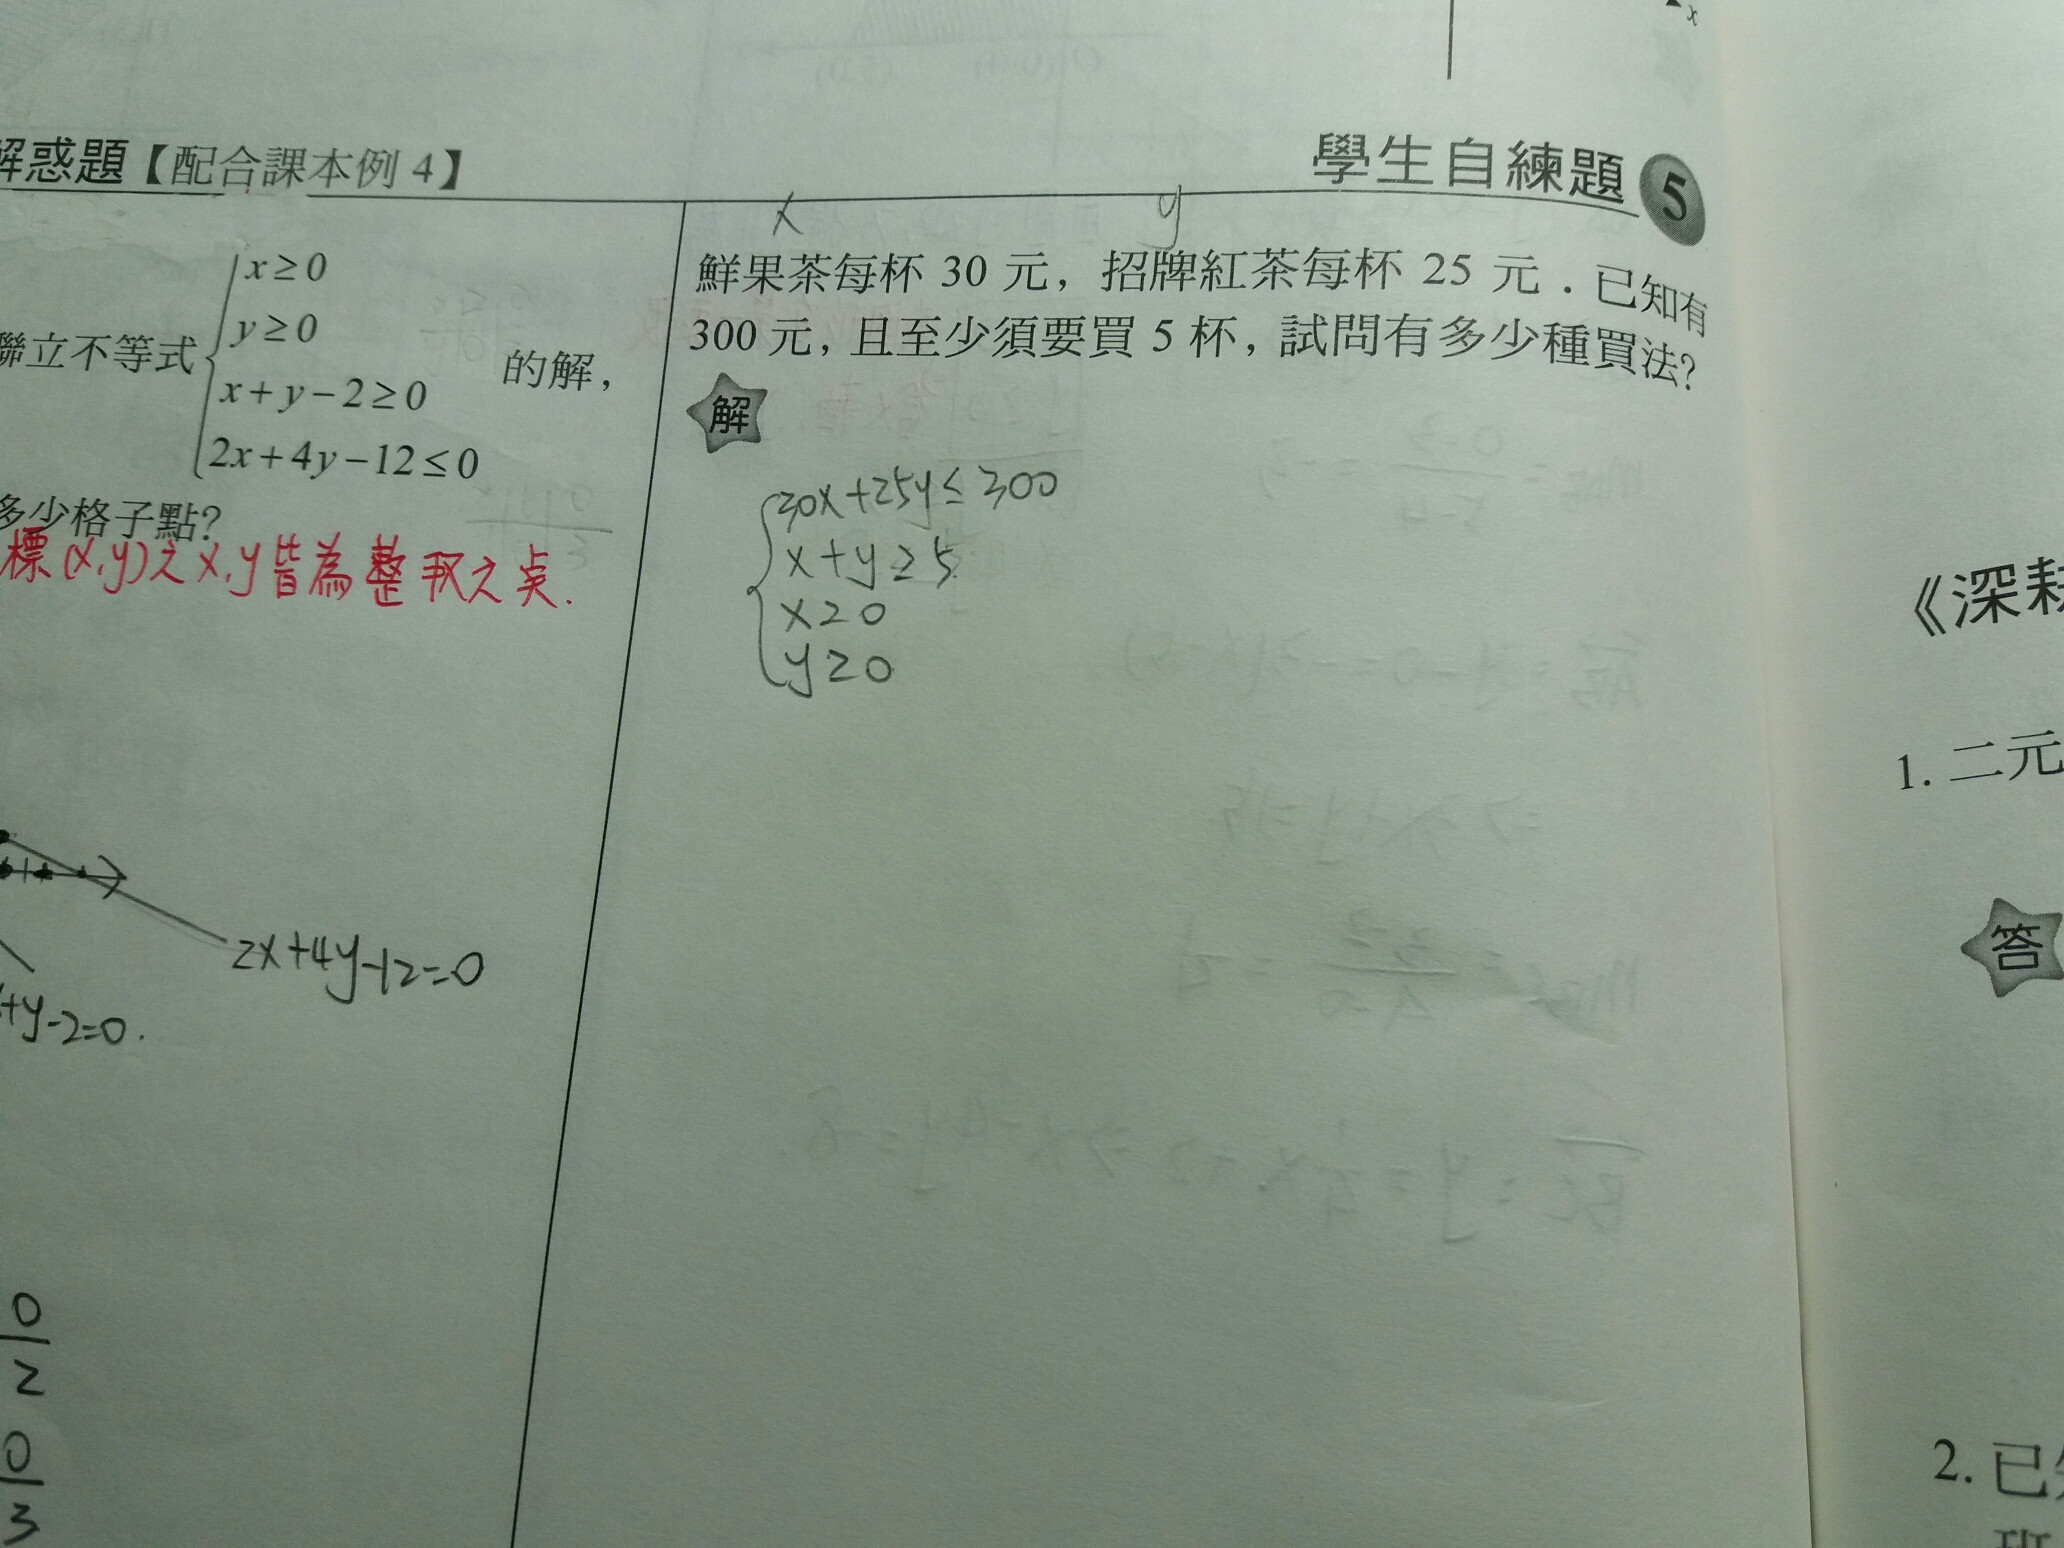 解惑題【配合課本例 4】
聯立不等式
x≥0
y≥0
x+y−2≥0
2x+4y−12≤0
的解，
多少格子點?
標(x,y)之x,y皆為整取之点.
2x+4y-12=0
+y-2=0.
0
2
0
3
學生自練題 5
x y
鮮果茶每杯 30 元，招牌紅茶每杯 25 元．已知有
300 元，且至少須要買 5 杯，試問有多少種買法?
解
30x+25y≤300
x+y≥5
x≥0
y≥0
x
《深耕
1. 二元
答
2. 已